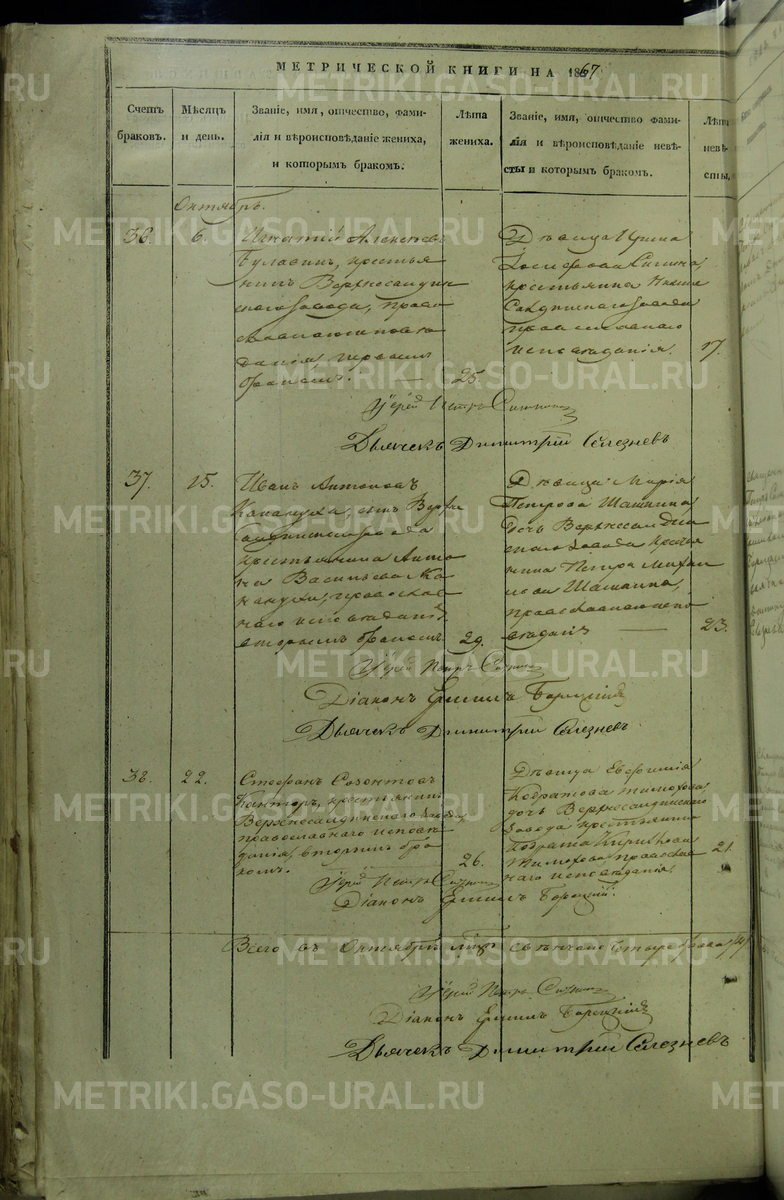 МЕТРИЧЕСКОЙ КНИГИ НА 1867
Счетъ браковъ.
Мѣсяцъ и день.
Званіе, имя, отчество, фами-
лія и вѣроисповѣданіе жениха,
и которымъ бракомъ.
Лѣта жениха.
Званіе, имя, отчество фами-
лія и вѣроисповѣданіе невѣ-
сты и которымъ бракомъ.
Лѣта невѣ-
сты,
Октябрь.
36.
6.
Игнатій Алексѣевъ
Булавинъ, крестья
нинъ Верхнесалдин
скаго завода, право
славнаго исповѣ
данія, первымъ
бракомъ.
25.
Дѣвица Ирина
крестьянина Нижне
Салдинскаго завода
православнаго
исповѣданія.
17.
Іерей Петръ
Дьячекъ Димитрій Селезневъ
37.
15.
Иванъ Антоновъ
Канакуха, сынъ Верхне
Салдинскаго завода
крестьянина Анто
на Васильева Ка
накухи, православ
наго исповѣданія
вторымъ бракомъ
29.
Дѣвица Марія
Петрова Шашкина
дочь Верхнесалдин
скаго завода крестья
нина Петра Михай
лова Шашкина,
православнаго испо
вѣданія
23.
Іерей Петръ
Діаконъ
Дьячекъ Димитрій Селезневъ
38.
22.
Стефанъ Созонтовъ
Канторъ, крестьянинъ
Верхнесалдинскаго завода,
православнаго исповѣ
данія, вторымъ бра
комъ.
26.
Дѣвица Евфимія
Кодратова Тимохова
дочь Верхнесалдинскаго
завода крестьянина
Кодрата Кирилова
Тимохова, православ
наго исповѣданія
21.
Іерей Петръ
Діаконъ
Всего въ Октябрѣ м̃цѣ
Іерей Петръ
Діаконъ
Дьячекъ Димитрій Селезневъ
METRIKI.GASO-URAL.RU